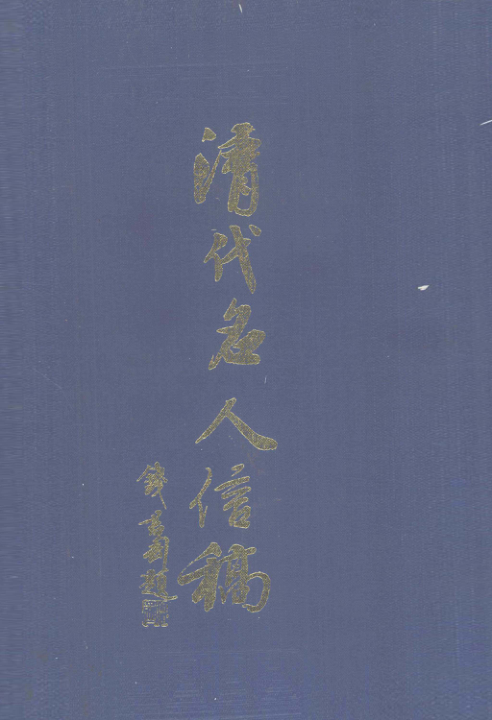 清代名人信稿
钱君匋题